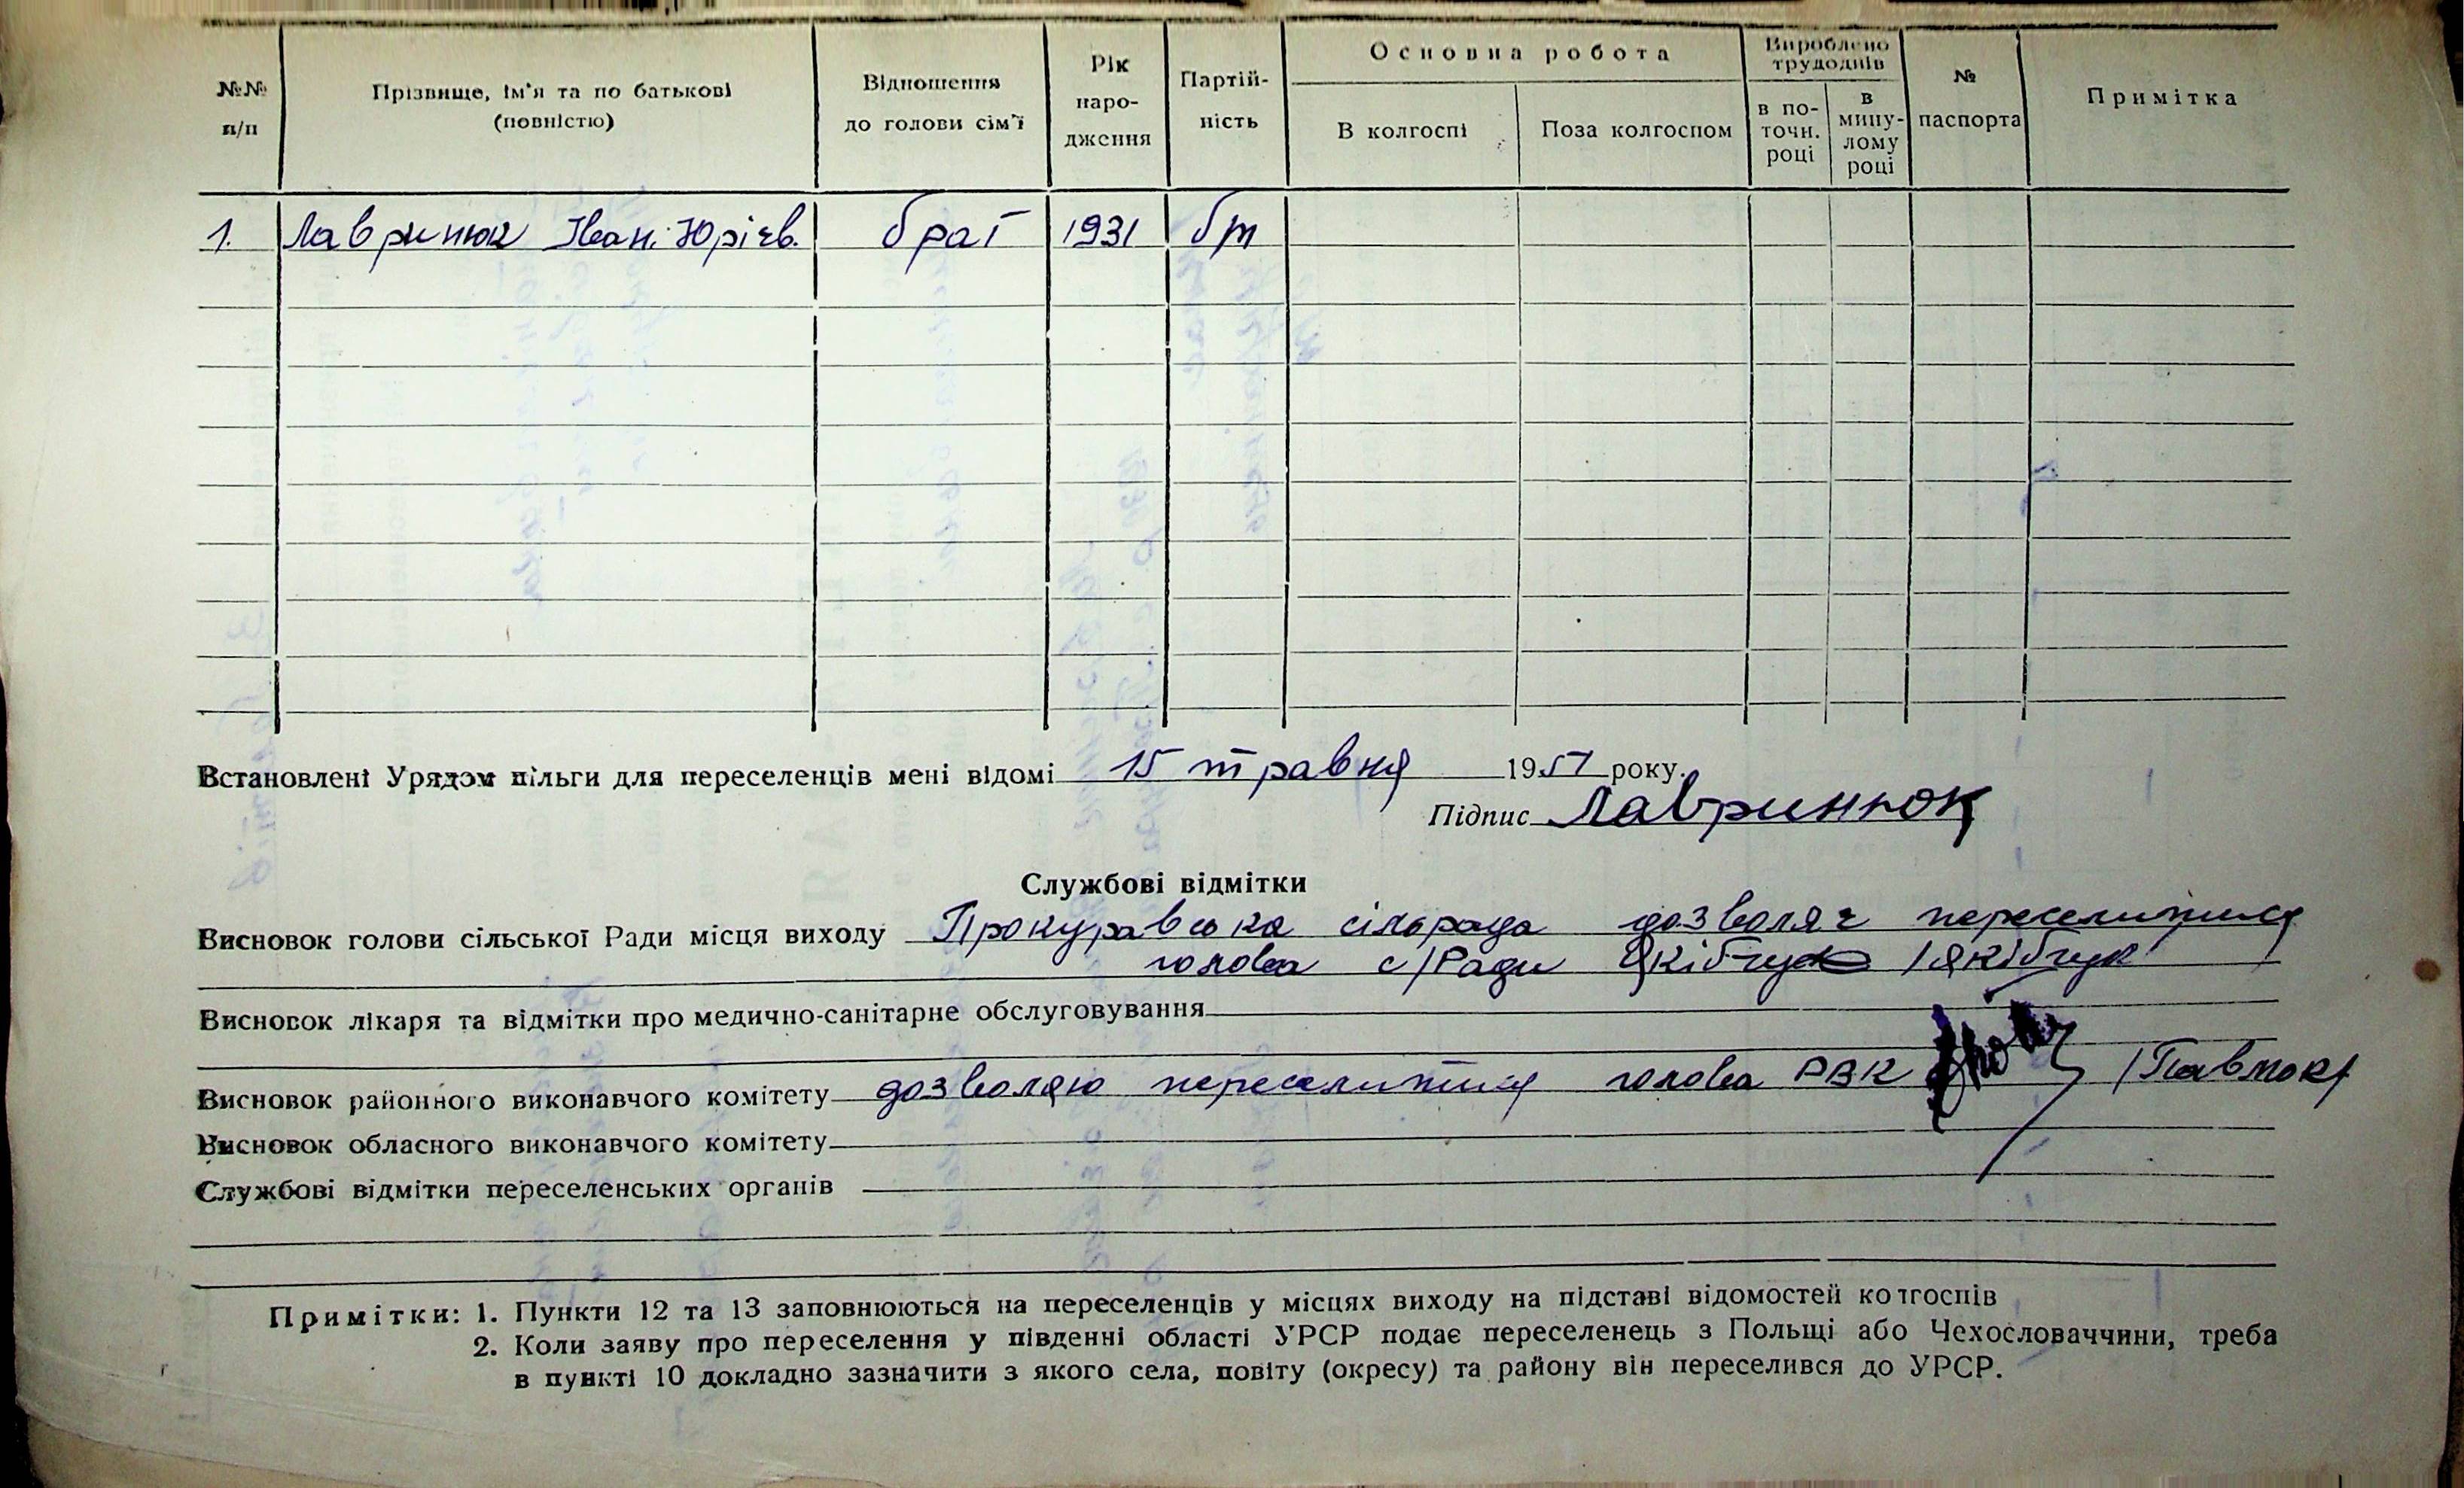 №№ п/п
Прізвище, ім'я та по батькові (повністю)
Відношення до голови сім'ї
Рік народження
Партійність
Основна робота
В колгоспі
Поза колгоспом
Вироблено трудоднів
в поточн. році
в минулому році
№ паспорта
Примітка
1. Лавринюк Іван Юрієв. брат 1931 бп
Встановлені Урядом пільги для переселенців мені відомі 15 травня 1951 року.
Підпис Лавринюк
Службові відмітки
Висновок голови сільської Ради місця виходу Прокуравська сільрада дозволяє переселитися
голова с/Ради Якібчук /Якібчук/
Висновок лікаря та відмітки про медично-санітарне обслуговування
Висновок районного виконавчого комітету дозволяю переселитися голова РВК /Павлюк/
Висновок обласного виконавчого комітету
Службові відмітки переселенських органів
Примітки: 1. Пункти 12 та 13 заповнюються на переселенців у місцях виходу на підставі відомостей колгоспів
2. Коли заяву про переселення у південні області УРСР подає переселенець з Польщі або Чехословаччини, треба
в пункті 10 докладно зазначити з якого села, повіту (окресу) та району він переселився до УРСР.